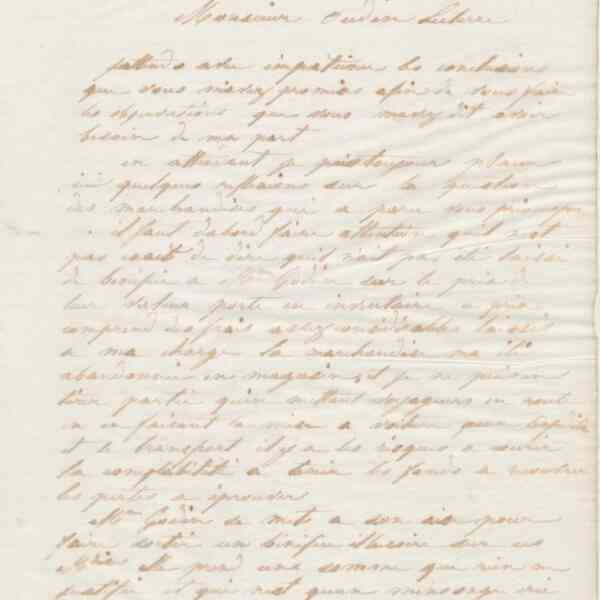 Monsieur Oudin Leclere
j'attends avec impatience les conclusions
que vous m'avez promises afin de vous faire
les observations que vous m'avez dit avoir
besoin de ma part
en attendant je puis toujours placer
ici quelques reflexions sur la question
des marchandises qui a paru vous
il faut dabord faire attention quil n'est
pas exact de dire quil n'ait pas été laissé
de benefice a Mme Godin sur le prix de
leur valeur porté en inventaire a prix
comprend des frais assez considerables laissés
a ma charge la marchandise ma été
abandonnée en magasin, et je ne puis en
tirer partie quen mettant voyageurs en route
en en faisant la mise a voiture pour
et le transport il y a les risques a courir
la comptabilité a tenir les fonds a
les pertes a éprouver
Mme Godin se mets a son aise pour
faire sortir un bénéfice illusoire sur ces
Mdises Elle prend une somme que rien ne
justifie et qui n'est quun mensonge